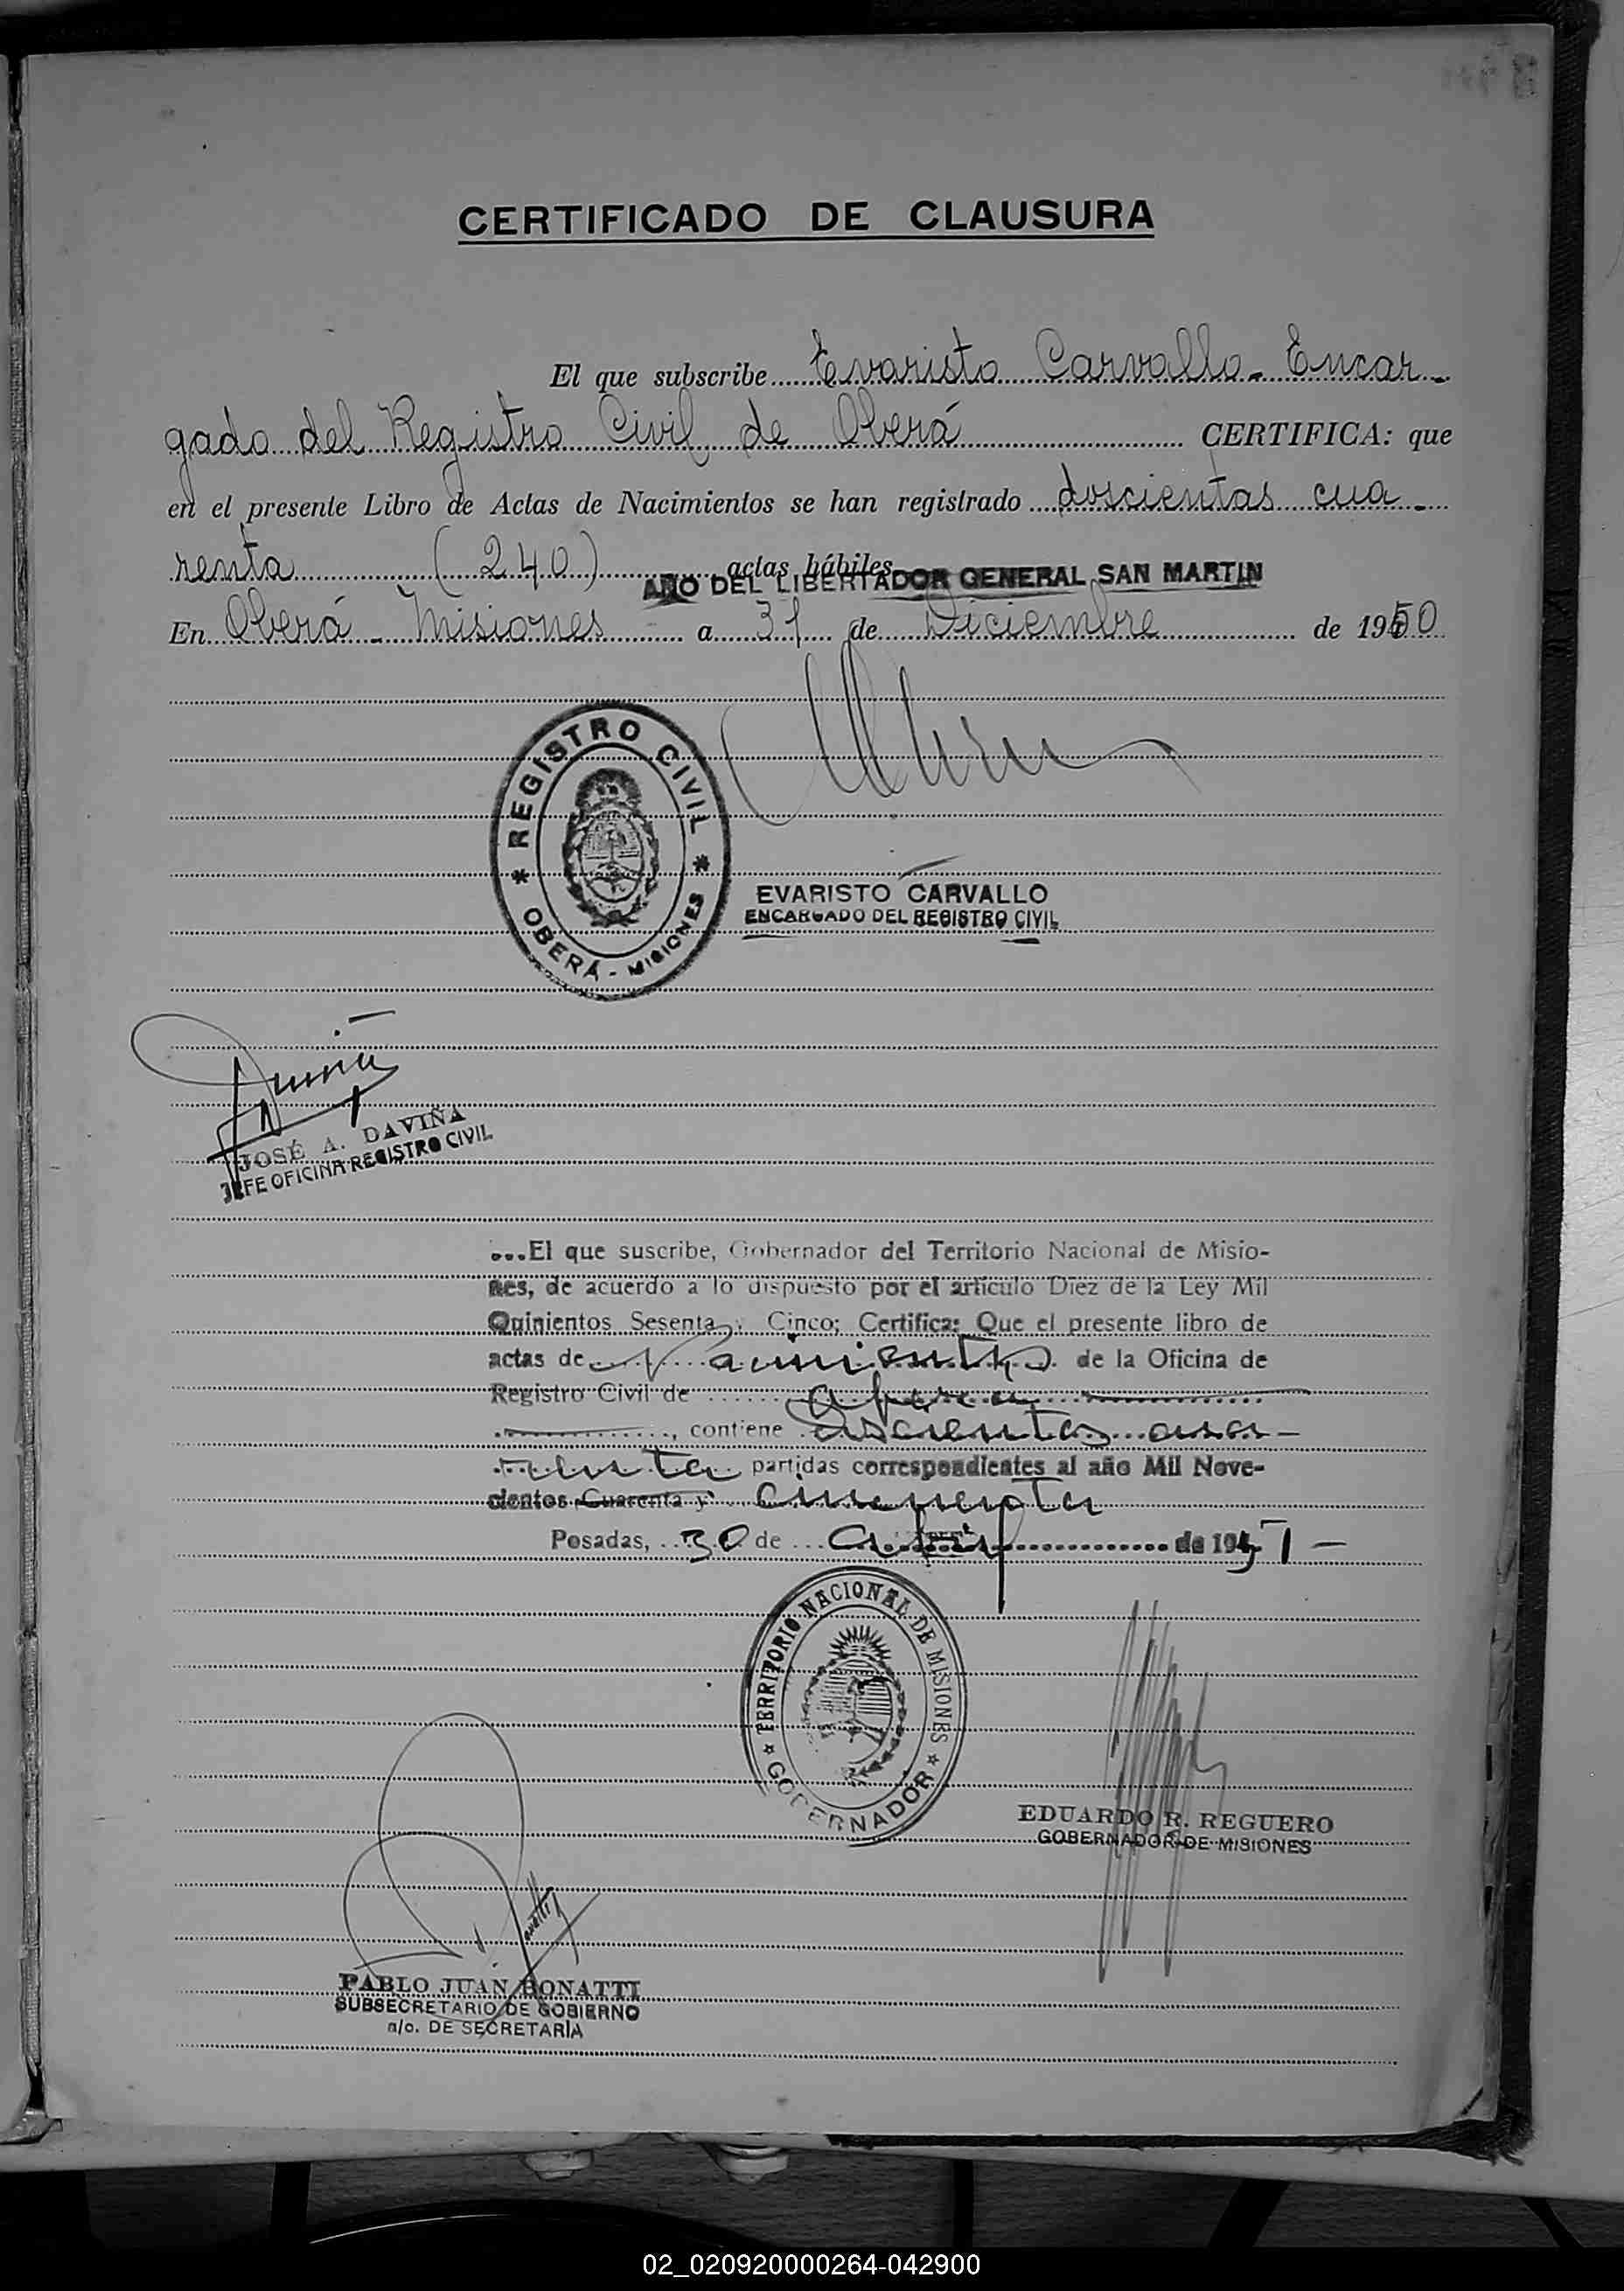 CERTIFICADO DE CLAUSURA
El que subscribe Evaristo Carvallo - Encar-
gado del Registro Civil de Oberá CERTIFICA: que
en el presente Libro de Actas de Nacimientos se han registrado doscientas cua-
renta (240) actas hábiles
AÑO DEL LIBERTADOR GENERAL SAN MARTIN
En Oberá - Misiones a 31 de Diciembre de 1950
REGISTRO CIVIL
* OBERÁ - MISIONES *
EVARISTO CARVALLO
ENCARGADO DEL REGISTRO CIVIL
JOSÉ A. DAVIÑA
JEFE OFICINA REGISTRO CIVIL
...El que suscribe, Gobernador del Territorio Nacional de Misio-
nes, de acuerdo a lo dispuesto por el artículo Diez de la Ley Mil
Quinientos Sesenta y Cinco; Certifica: Que el presente libro de
actas de Nacimientos de la Oficina de
Registro Civil de Obera
, contiene doscientas cua-
renta partidas correspondientes al año Mil Nove-
cientos Cuarenta y cincuenta
Posadas, 30 de abril de 1951 -
TERRITORIO NACIONAL DE MISIONES
* GOBERNADOR *
EDUARDO R. REGUERO
GOBERNADOR DE MISIONES
PABLO JUAN BONATTI
SUBSECRETARIO DE GOBIERNO
a/c. DE SECRETARIA
02_020920000264-042900